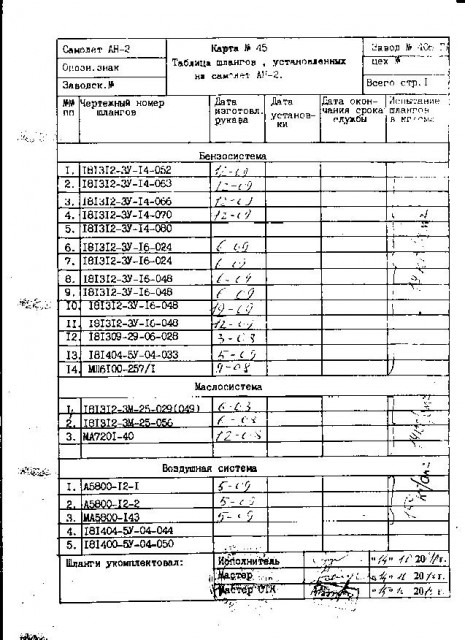 Самолет АН-2
Карта № 45
Завод № 406 ГА
Опозн.знак
Таблица шлангов, установленных
цех №
на самолет АН-2.
Заводск.№
Всего стр.I
№№ пп
Чертежный номер шлангов
Дата изготовл. рукава
Дата установ-ки
Дата окон-чания срока службы
Испытание шлангов в кг/см2
Бензосистема
I. I8I3I2-ЗУ-I4-052 12-09
2. I8I3I2-ЗУ-I4-063 12-09
3. I8I3I2-ЗУ-I4-066 12-09
4. I8I3I2-ЗУ-I4-070 12-09
5. I8I3I2-ЗУ-I4-080
6. I8I3I2-ЗУ-I6-024 6-09
7. I8I3I2-ЗУ-I6-024 6-09
8. I8I3I2-ЗУ-I6-048 6-09
9. I8I3I2-ЗУ-I6-048 6-09
I0. I8I3I2-ЗУ-I6-048 12-09
II. I8I3I2-ЗУ-I6-048 12-09
I2. I8I309-29-06-028 3-08
I3. I8I404-5У-04-033 5-09
I4. МШ6I00-257/I 9-08
Маслосистема
I. I8I3I2-ЗМ-25-029(049) 6-03
2. I8I3I2-ЗМ-25-056 6-08
3. МА720I-40 12-08
Воздушная система
I. А5800-I2-I 5-09
2. А5800-I2-2 5-09
3. МА5800-I43 5-09
4. I8I404-5У-04-044
5. I8I400-5У-04-050
Шланги укомплектовал:
Исполнитель
Мастер
Мастер ОТК